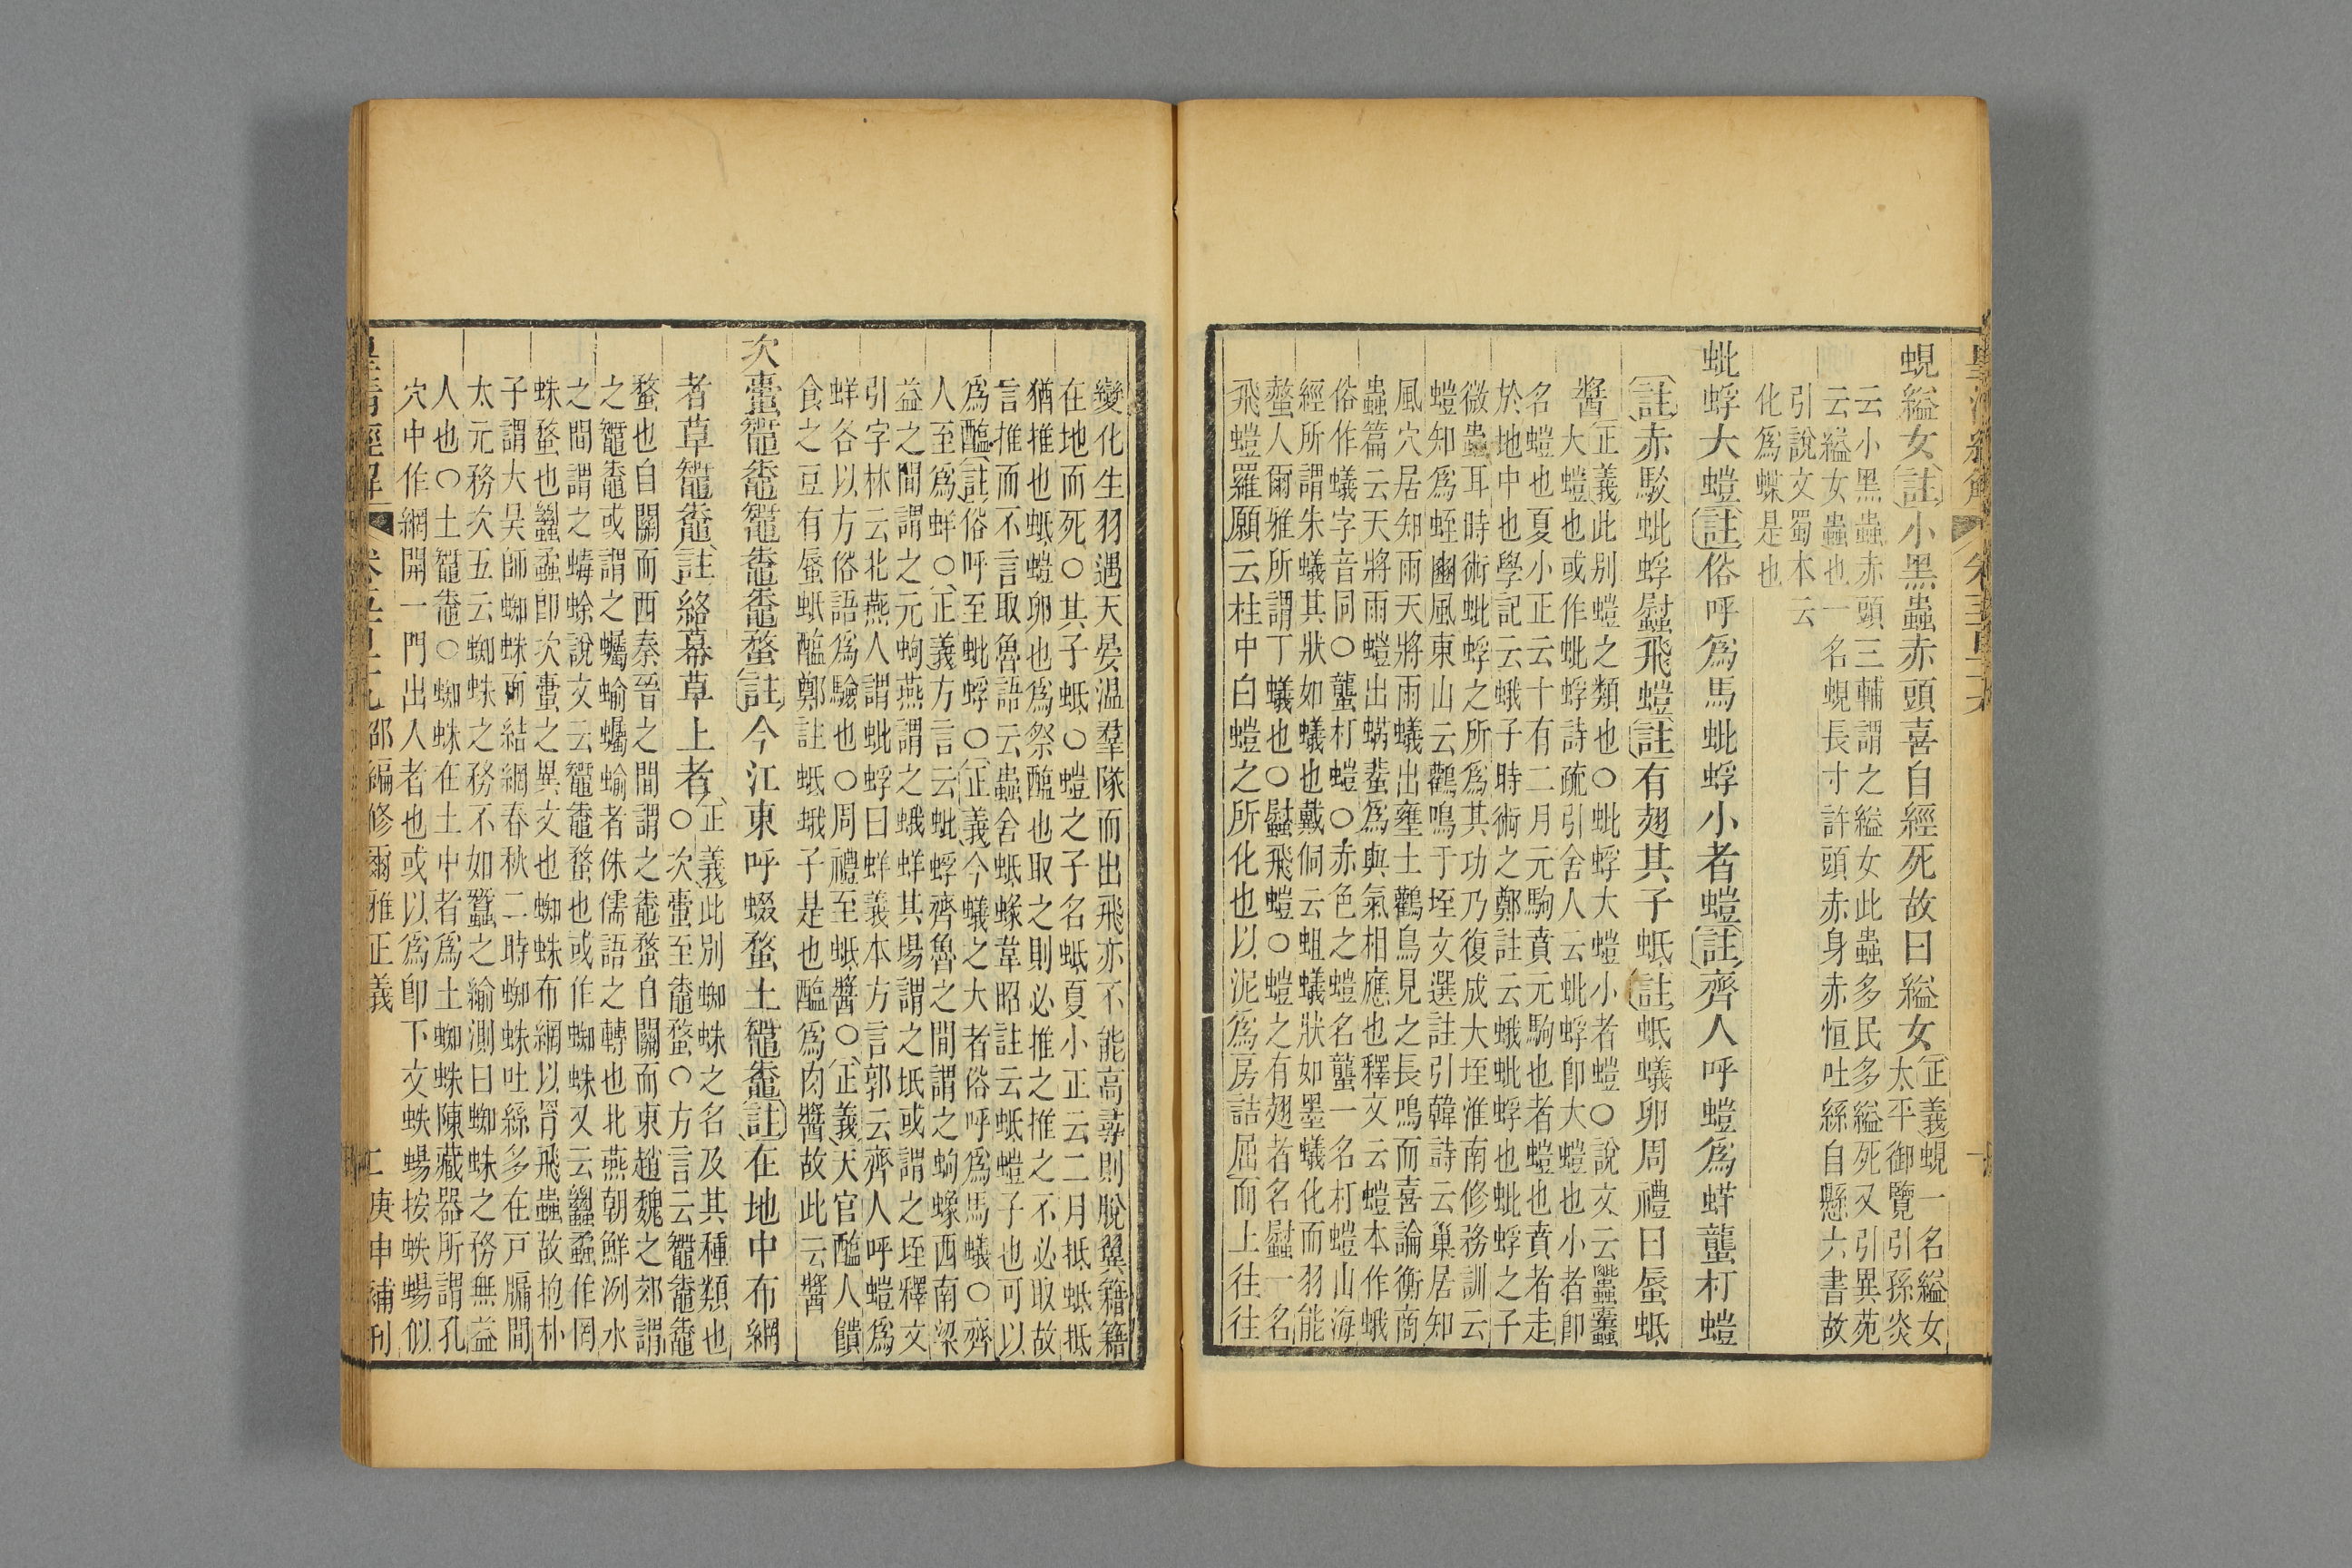 蜆縊女註小黑蟲赤頭喜自經死故曰縊女正義蜆一名縊女
太平御覽引孫炎
云小黑蟲赤頭三輔謂之縊女此蟲多民多縊死又引異苑
云縊女蟲也一名蜆長寸許頭赤身赤恒吐絲自懸六書故
引說文蜀本云
化爲蝶是也
蚍蜉大螘註俗呼爲馬蚍蜉小者螘註齊人呼螘爲蛘蠪朾螘
註赤駮蚍蜉䗿飛螘註有翅其子蚳註蚳蟻卵周禮曰蜃蚳
醬正義此别螘之類也○蚍蜉大螘小者螘○說文云
大螘也或作蚍蜉詩疏引舍人云蚍蜉卽大螘也小者卽
名螘也夏小正云十有二月元駒賁元駒也者螘也賁者走
於地中也學記云蛾子時術之鄭註云蛾蚍蜉也蚍蜉之子
微蟲耳時術蚍蜉之所爲其功乃復成大垤淮南修務訓云
螘知爲蛭豳風東山云鸛鳴于垤文選註引韓詩云巢居知
風穴居知雨天將雨蟻出壅土鸛鳥見之長鳴而喜論衡商
蟲篇云天將雨螘出蜹蜚爲與氣相應也釋文云螘本作蛾
俗作蟻字音同○蠪朾螘○赤色之螘名蠪一名朾螘山海
經所謂朱蟻其狀如蟻也戴侗云蛆蟻狀如墨蟻化而羽能
螫人爾雅所謂丁蟻也○䗿飛螘○螘之有翅者名䗿一名
飛螘羅願云柱中白螘之所化也以泥爲房詰屈而上往往
變化生羽遇天晏温羣隊而出飛亦不能高尋則脫翼籍籍
在地而死○其子蚳○螘之子名蚳夏小正云二月抵蚳抵
猶推也蚳螘卵也爲祭醢也取之則必推之推之不必取故
言推而不言取魯語云蟲舍蚳蝝韋昭註云蚳螘子也可以
爲醢註俗呼至蚍蜉○正義今蟻之大者俗呼爲馬蟻○齊
人至爲蛘○正義方言云蚍蜉齊魯之間謂之蚼蟓西南梁
益之間謂之元蚼燕謂之蛾蛘其場謂之坻或謂之垤釋文
引字林云北燕人謂蚍蜉曰蛘義本方言郭云齊人呼螘爲
蛘各以方俗語爲驗也○周禮至蚳醬○正義天官醢人饋
食之豆有蜃蚳醢鄭註蚳蛾子是也醢爲肉醬故此云醬
次蟗鼅鼄鼅鼄鼄蝥註今江東呼蝃蝥土鼅鼄註在地中布網
者草鼅鼄註絡幕草上者正義此别蜘蛛之名及其種類也
○次蟗至鼄蝥○方言云鼅鼄鼄
蝥也自關而西秦晉之間謂之鼄蝥自關而東趙魏之郊謂
之鼅鼄或謂之蠾蝓蠾蝓者侏儒語之轉也北燕朝鮮洌水
之間謂之蝳蜍說文云鼅鼄蝥也或作蜘蛛又云蠿蟊作罔
蛛蝥也蠿蟊卽次蟗之異文也蜘蛛布網以罥飛蟲故抱朴
子謂大昊師蜘蛛而結網春秋二時蜘蛛吐絲多在戸牖間
太元務次五云蜘蛛之務不如蠶之緰測曰蜘蛛之務無益
人也○土鼅鼄○蜘蛛在土中者爲土蜘蛛陳藏器所謂孔
穴中作網開一門出人者也或以爲卽下文蛈蝪按蛈蝪似
皇清經解 邵編修爾雅正義 庚申補刊